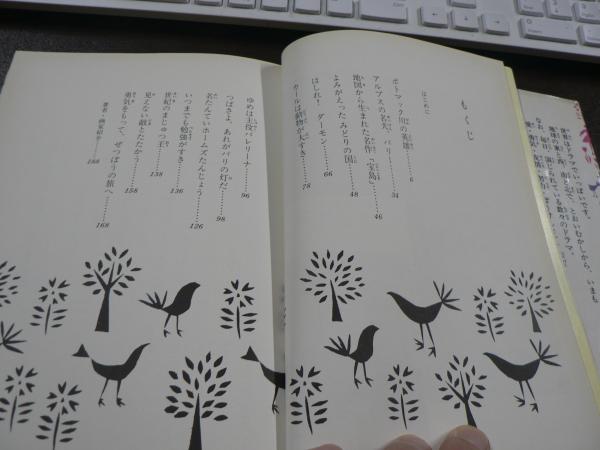 もくじ
はじめに
ポトマック川の英雄……6
アルプスの名犬、バリー……34
地図から生まれた名作『宝島』……46
よみがえった みどりの国……48
はしれ! ダーモン……66
カールは動物が大すき……78
ゆめは主役バレリーナ……96
つばさよ、あれがパリの灯だ……98
名たんていホームズたんじょう……126
いつまでも勉強がすき……136
世紀のまじゅつ王……138
見えない敵とたたかう……158
勇気をもって、ぜっぽうの旅へ……168
著者・画家紹介……188
世界はドラマでいっぱいです。